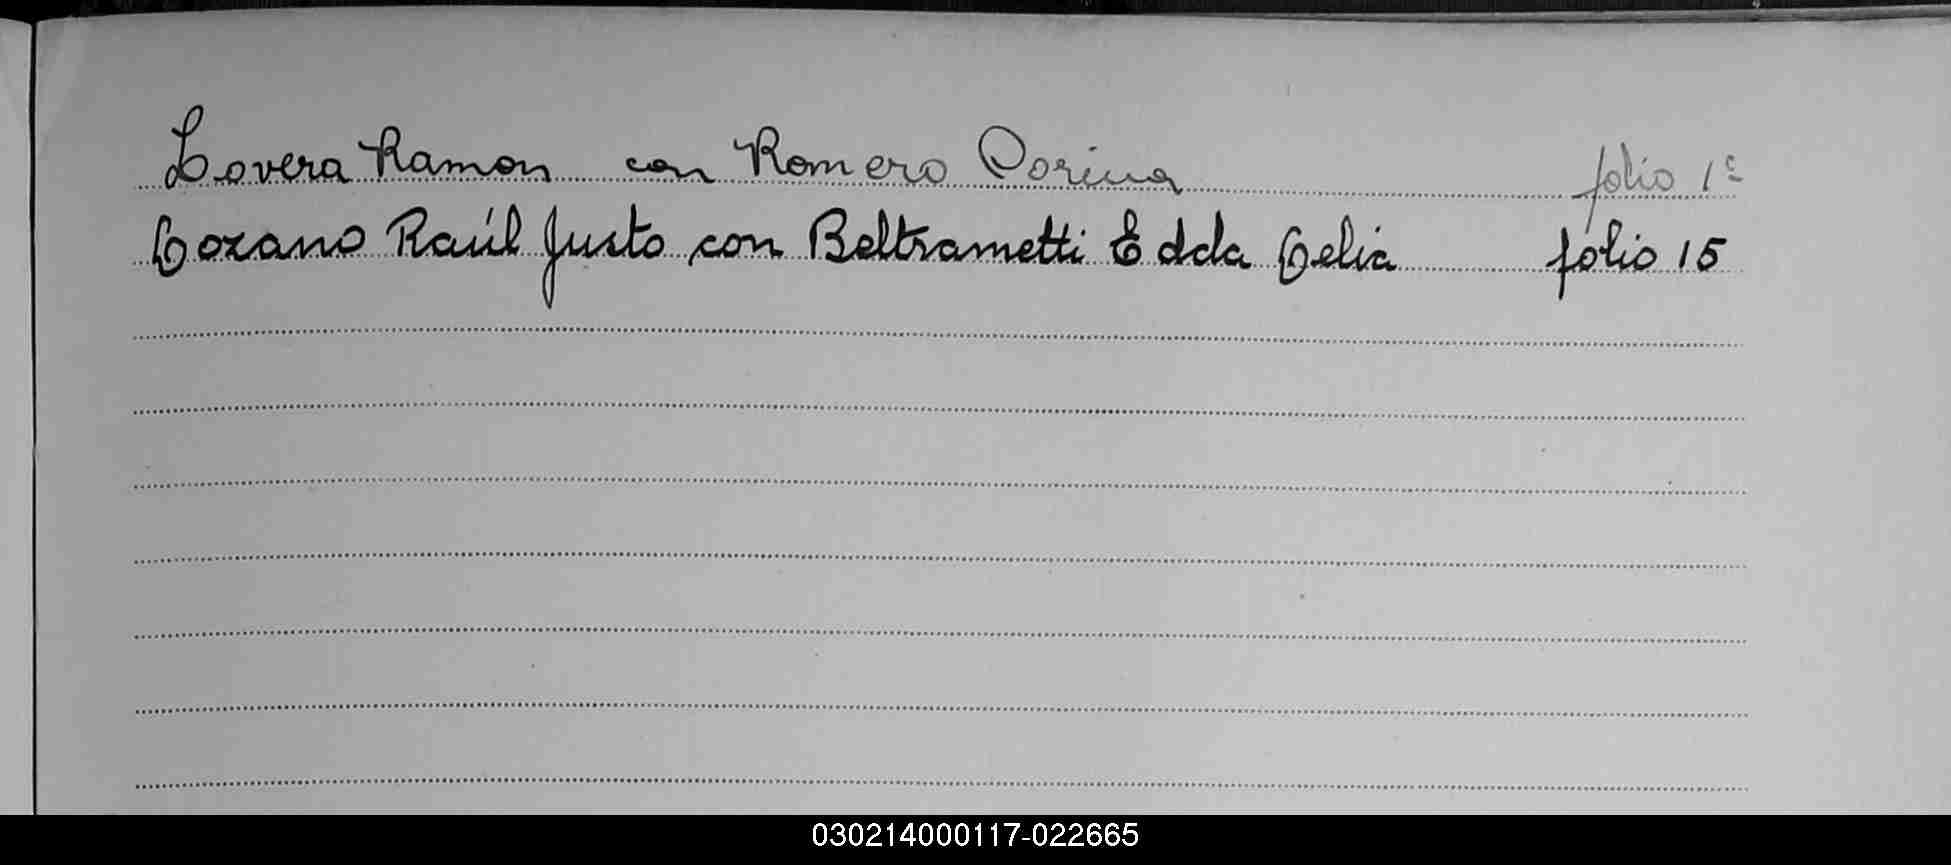 Lovera Ramon con Romero Corina folio 1º
Lozano Raúl Justo con Beltrametti Edda Celia folio 15
030214000117-022665